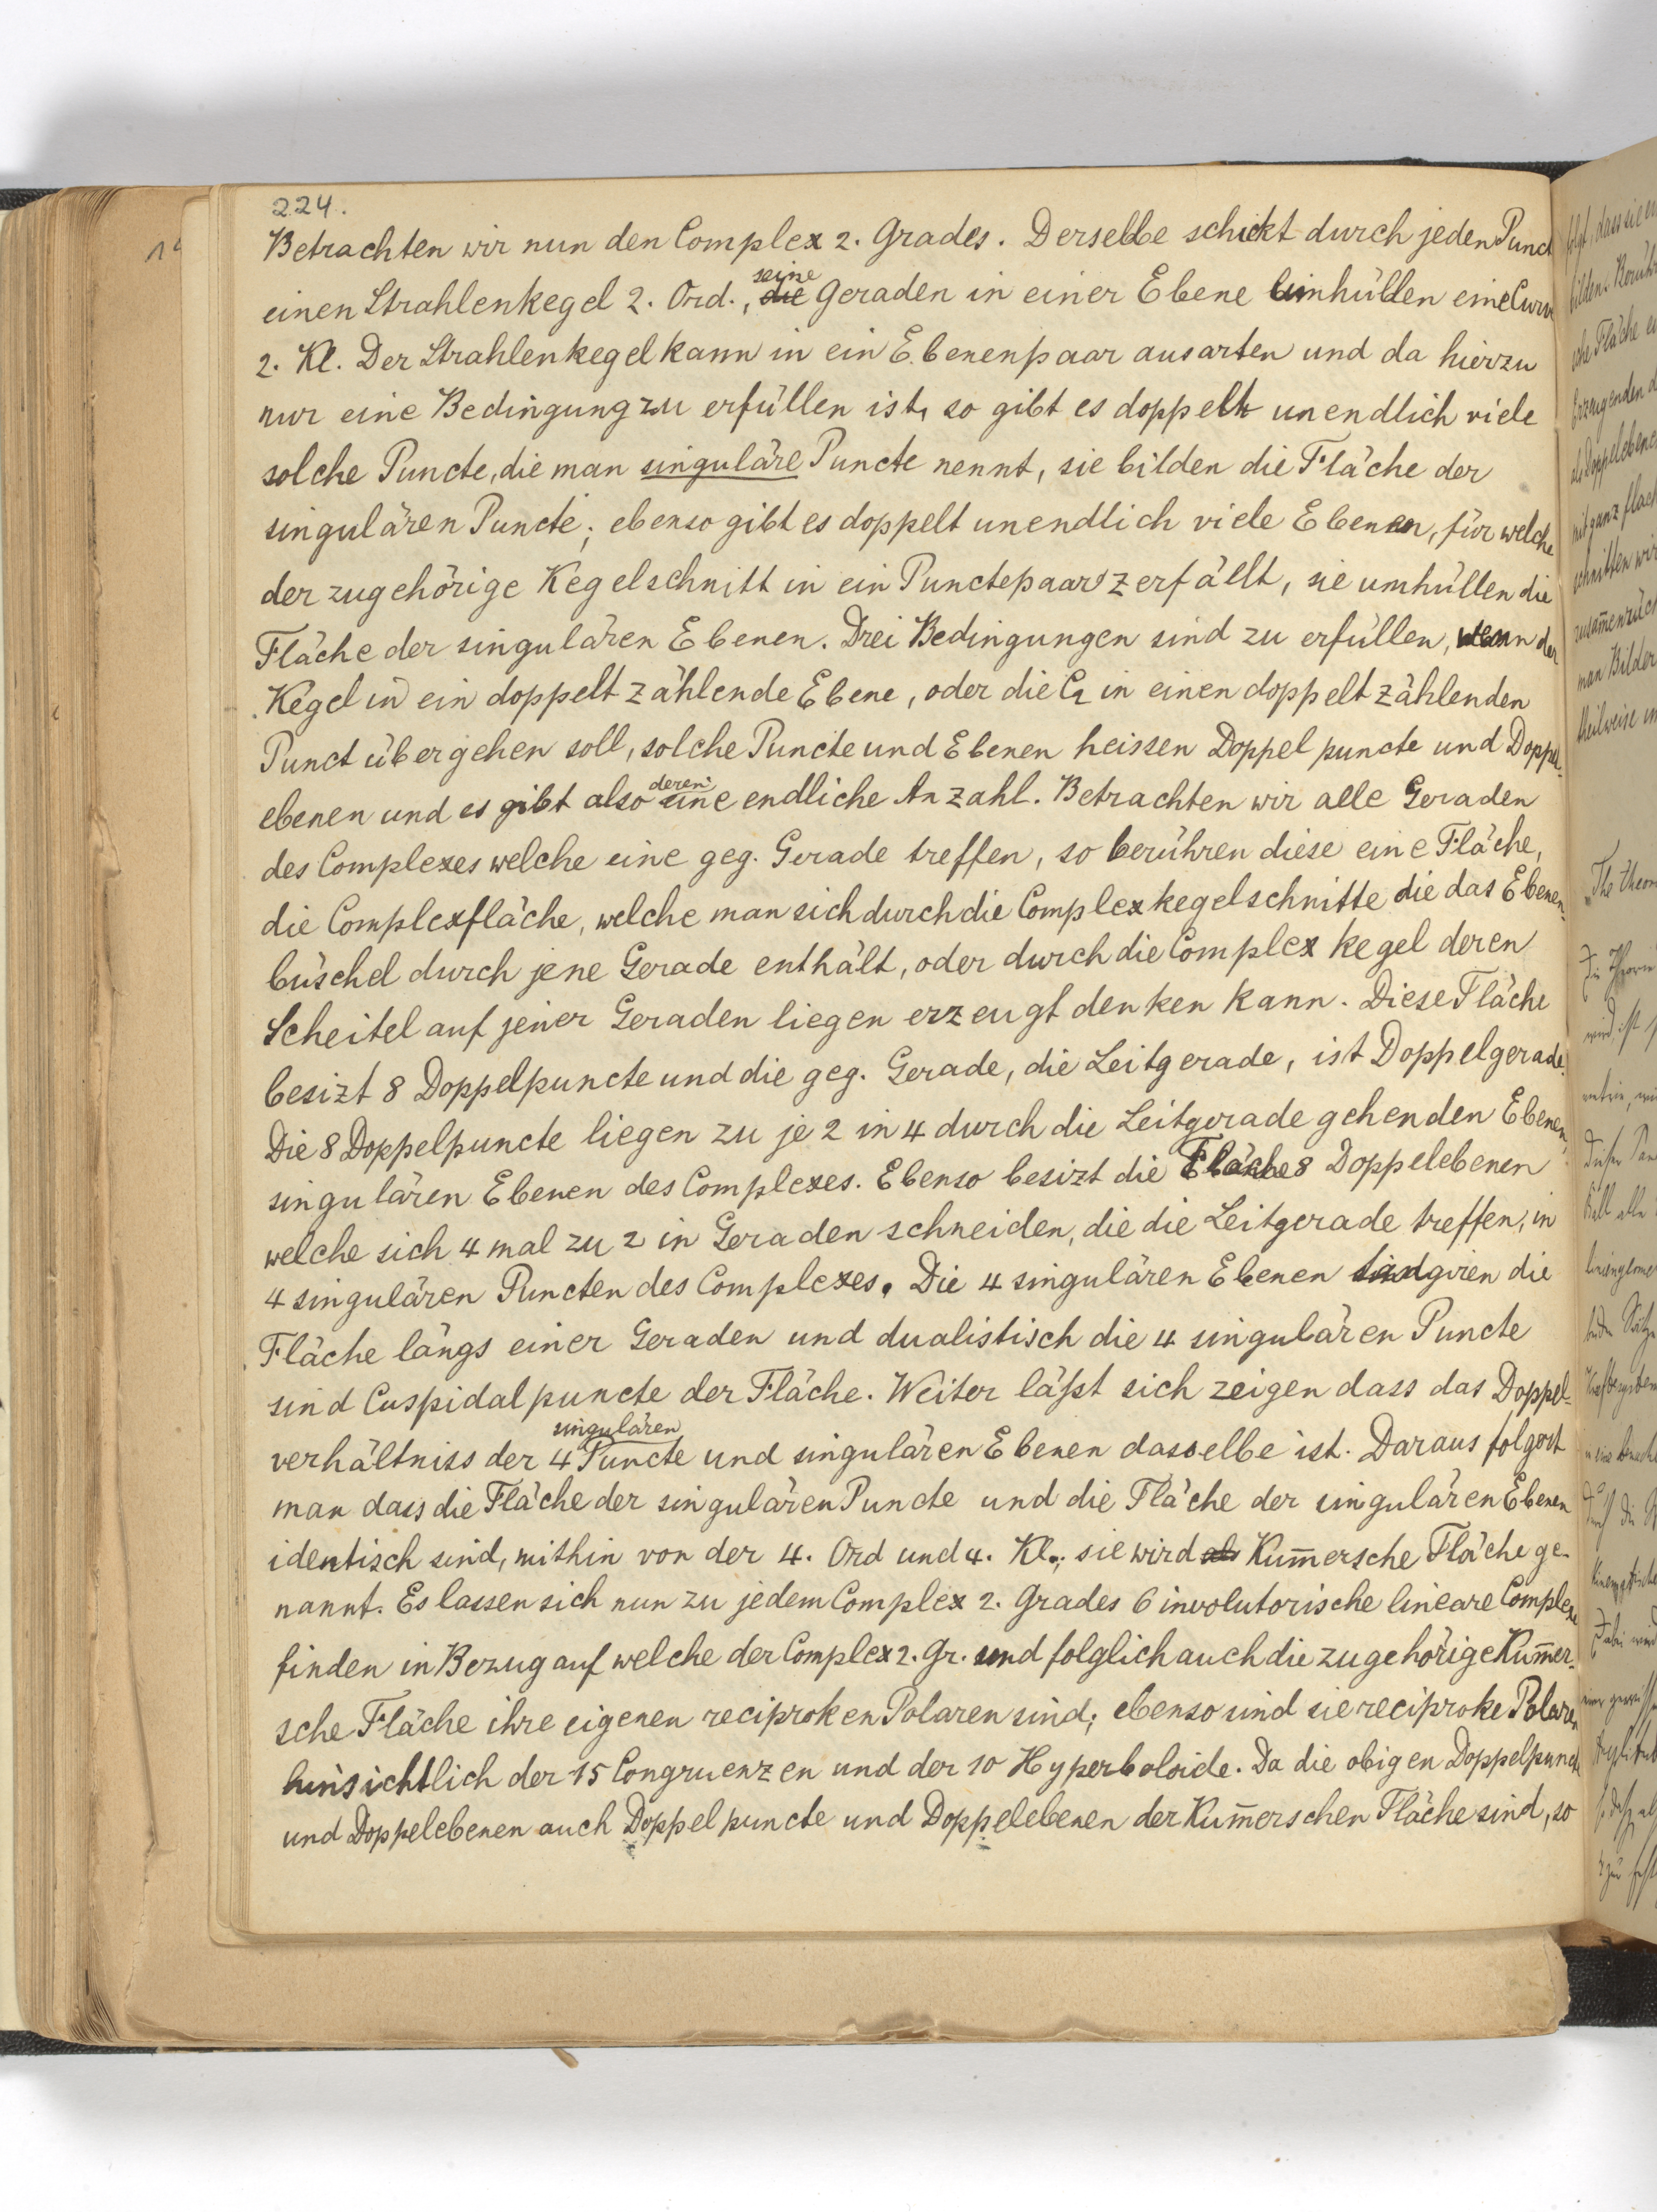 224.
Betrachten wir nun den Complex 2. Grades. Derselbe schickt durch jeden Punct
einen Strahlenkegel 2. Ord., seine Geraden in einer Ebene umhüllen eine Curv
2. Kl. Der Strahlenkegel kann in ein Ebenenpaar ausarten und da hierzu
nur eine Bedingung zu erfüllen ist, so gibt es doppelt unendlich viele
solche Puncte, die man singuläre Puncte nennt, sie bilden die Fläche der
singulären Puncte; ebenso gibt es doppelt unendlich viele Ebenen, für welche
der zugehörige Kegelschnitt in ein Punctepaar zerfällt, sie umhüllen die
Fläche der singulären Ebenen. Drei Bedingungen sind zu erfüllen, wenn der
Kegel in ein doppelt zählende Ebene, oder die C₂ in einen doppelt zählenden
Punct übergehen soll, solche Puncte und Ebenen heissen Doppelpuncte und Doppel-
ebenen und es gibt also deren eine endliche Anzahl. Betrachten wir alle Geraden
des Complexes welche eine geg. Gerade treffen, so berühren diese eine Fläche,
die Complexfläche, welche man sich durch die Complexkegelschnitte die das Ebenen-
büschel durch jene Gerade enthält, oder durch die Complex kegel deren
Scheitel auf jener Geraden liegen erzeugt denken kann. Diese Fläche
besizt 8 Doppelpuncte und die geg. Gerade, die Leitgerade, ist Doppelgerade.
Die 8 Doppelpuncte liegen zu je 2 in 4 durch die Leitgerade gehenden Ebenen,
singulären Ebenen des Complexes. Ebenso besizt die Fläche 8 Doppelebenen
welche sich 4 mal zu 2 in Geraden schneiden, die die Leitgerade treffen, in
4 singulären Puncten des Complexes. Die 4 singulären Ebenen tangiren die
Fläche längs einer Geraden und dualistisch die 4 singulären Puncte
sind Cuspidalpuncte der Fläche. Weiter läßt sich zeigen dass das Doppel-
verhältniss der 4 singulären Puncte und singulären Ebenen dasselbe ist. Daraus folgert
man dass die Fläche der singulären Puncte und die Fläche der singulären Ebenen
identisch sind, mithin von der 4. Ord und 4. Kl.; sie wird als Kum̅ersche Fläche ge-
nannt. Es lassen sich nun zu jedem Complex 2. Grades 6 involutorische lineare Complexe
finden in Bezug auf welche der Complex 2. Gr. und folglich auch die zugehörige Kum̅er-
sche Fläche ihre eigenen reciproken Polaren sind; ebenso sind sie reciproke Polaren
hinsichtlich der 15 Congruenzen und der 10 Hyperboloide. Da die obigen Doppelpuncte
und Doppelebenen auch Doppelpuncte und Doppelebenen der Kum̅erschen Fläche sind, so